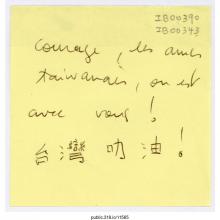 IB00390
IB00343
courage, les amis
taiwanais, on est
avec vous!
台灣叻油!
public.318.io/11585